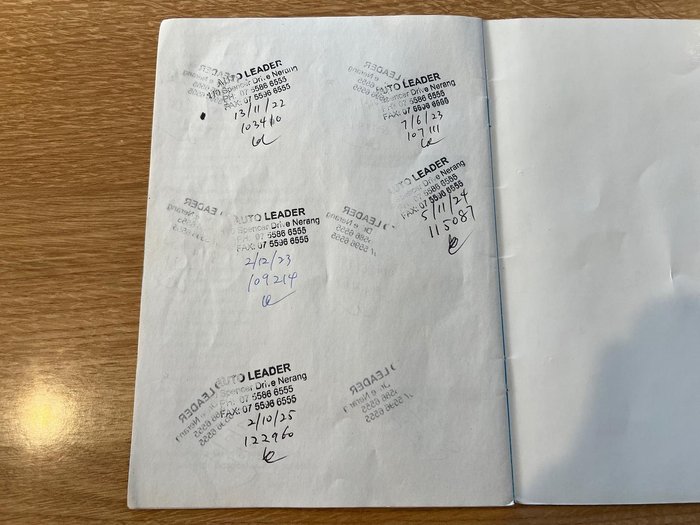 AUTO LEADER
Spencer Drive Nerang
PH: 07 5586 6555
FAX: 07 5596 6555
13/11/22
103410
AUTO LEADER
Spencer Drive Nerang
PH: 07 5586 6555
FAX: 07 5596 6555
7/6/23
107111
AUTO LEADER
Spencer Drive Nerang
07 5586 6555
FAX: 07 5596 6555
5/11/24
115081
AUTO LEADER
Spencer Drive Nerang
PH: 07 5586 6555
FAX: 07 5596 6555
2/12/23
109214
AUTO LEADER
Spencer Drive Nerang
PH: 07 5586 6555
FAX: 07 5596 6555
2/10/25
122960